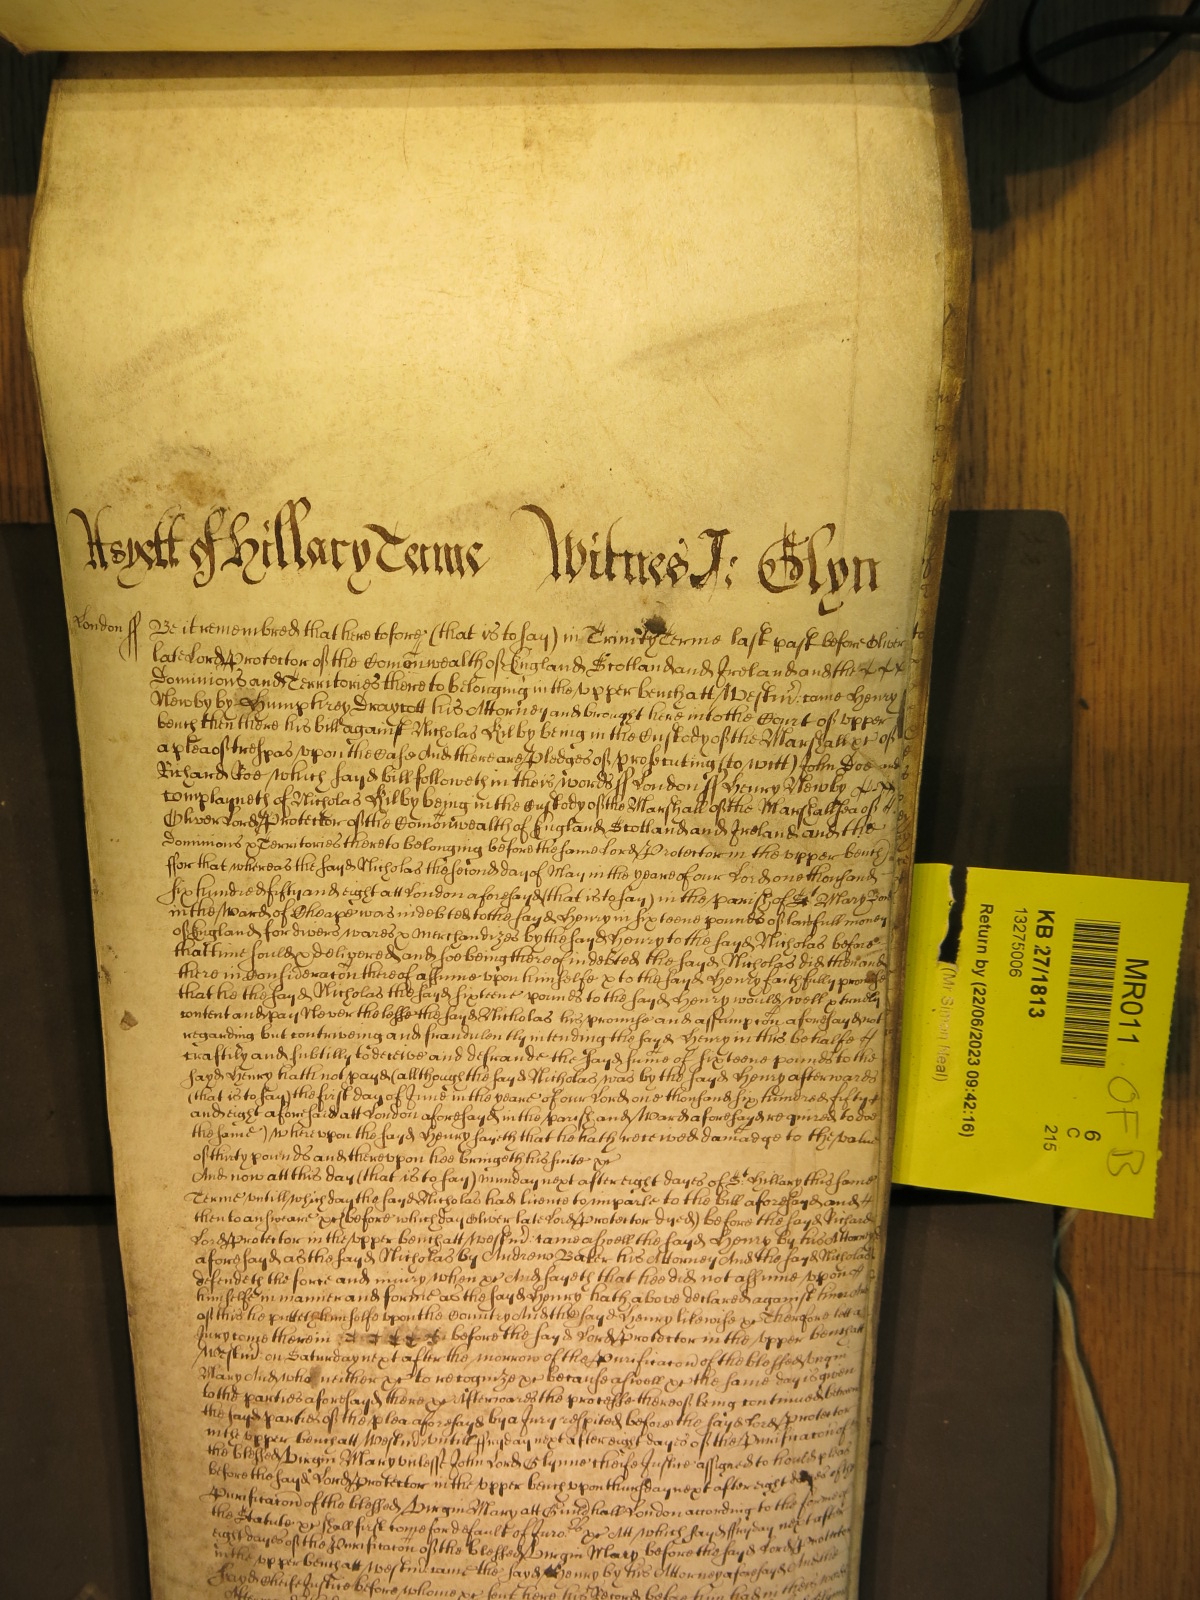 As yett of Hillary Terme Witnes J: Glyn
London ss Be it remembred that heretofore (that is to say) in Trinity Terme last past before Oliver
late Lord Protector of the Comonwealth of England Scotland and Ireland and the
Dominions and Territories thereto belonging in the upper bench att Westmr: came Henry
Newby by Humphrey Draycott his Attorney and brought here into the Court of upper
bench then there his bill against Nicholas Kilby being in the Custody of the Marshall &c of
a plea of trespas upon the Case And there are pledges of prosecuting (to witt) John Doe and
Richard Roe which sayd bill followeth in theis words ss London ss Henry Newby
complayneth of Nicholas Kilby being in the Custody of the Marshall of the Marshallsea of
Oliver Lord Protector of the Comonwealth of England Scotland and Ireland and the
Dominions & Territories thereto belonging before the same Lord Protector in the upper bench
ffor that whereas the sayd Nicholas the second day of May in the yeare of our Lord one thousand
six hundred fifty and eight att London aforesayd (that is to say) in the parish of St Mary
in the Ward of Cheape was indebted to the sayd Henry in sixteene pounds of lawfull money
of England for divers wares & merchandizes by the sayd Henry to the sayd Nicholas before
that time sould & delivered and soe being thereof indebted the sayd Nicholas did then and
there in Consideracon thereof assume upon himselfe & to the sayd Henry faithfully promise
that he the sayd Nicholas the sayd sixteene pounds to the sayd Henry would well & truely
content and pay Neverthelesse the sayd Nicholas his promise and assumpcon aforesayd not
regarding but contriveing and fraudulently intending the sayd Henry in this behalfe
craftily and subtilly to deceive and defraude the sayd sume of sixteene pounds to the
sayd Henry hath not payd (allthough the sayd Nicholas was by the sayd Henry afterwards
(that is to say) the first day of June in the yeare of our Lord one thousand six hundred fifty
and eight aforesaid att London aforesayd in the parish and Ward aforesayd required to doe
the same) whereupon the sayd Henry sayeth that he hath received damadge to the value
of thirty pounds and thereupon hee bringeth his suite &c
And now att this day (that is to say) munday next after eight dayes of St Hillary this same
Terme untill which day the sayd Nicholas had licence to imparle to the bill aforesayd and
then to answeare &c (before which day Oliver late Lord Protector dyed) before the sayd Richard
Lord Protector in the upper bench att Westmr: came aswell the sayd Henry by his Attorney
aforesayd as the sayd Nicholas by Andrew Baker his Attorney And the sayd Nicholas
defendeth the force and injury when &c And sayeth that hee did not assume upon
himselfe in manner and forme as the sayd Henry hath above declared against him And
of this he putteth himselfe upon the Country And the sayd Henry likewise &c Therefore lett a
Jury come therein before the sayd Lord Protector in the upper bench att
Westmr: on Saturday next after the morrow of the Purificacon of the blessed virgin
Mary And who neither &c to recognize &c because aswell &c the same day is given
to the parties aforesayd there &c Afterwards the processe thereof being continued between
the sayd parties of the plea aforesayd by a Jury respited before the sayd Lord Protector
in the upper bench att Westmr: untill ffryday next after eight dayes of the Purificacon of
the blessed Virgin Mary unlesse John Lord Glynne cheife Justice assigned to hould pleas
before the sayd Lord Protector in the upper bench upon thursday next after eight dayes of the
Purificacon of the blessed Virgin Mary att Guildhall London according to the forme of
the Statute &c shall first come for default of Jurors &c Att which sayd ffryday next after
eight dayes of the Purificacon of the blessed Virgin Mary before the sayd Lord Protector
in the upper bench att Westmr: came the sayd Henry by his Attorney aforesayd And the
sayd cheife Justice before whome &c sent here his Record before him had in theis words
MR011 OFB
6
C
215
KB 27/1813
13275006
Return by (22/06/2023 09:42:16)
(Mr Simon Neal)